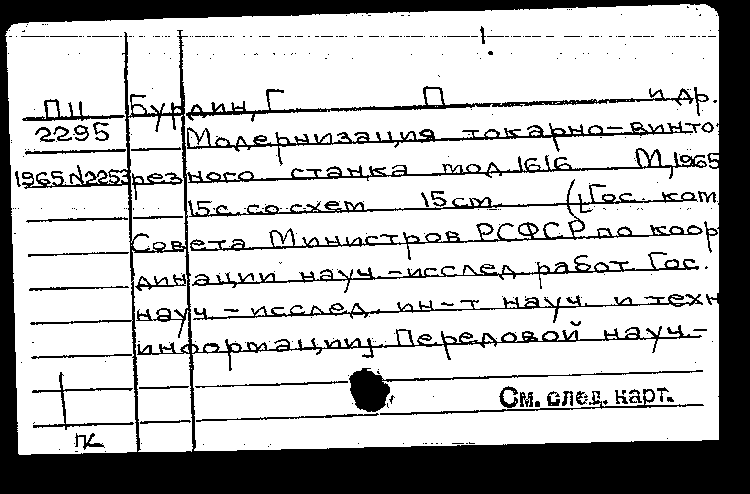 П11 Бурдин, Г П и др.
2295 Модернизация токарно-винто-
1965 N2253 резного станка мод. 1616 М, 1965
15 с. со схем 15 cm ([Гос. ком
Совета Министров РСФСР по коор-
динации науч.-исслед работ Гос.
науч.-исслед. ин-т науч. и техн
информации]. Передовой науч.-
См. след. карт.